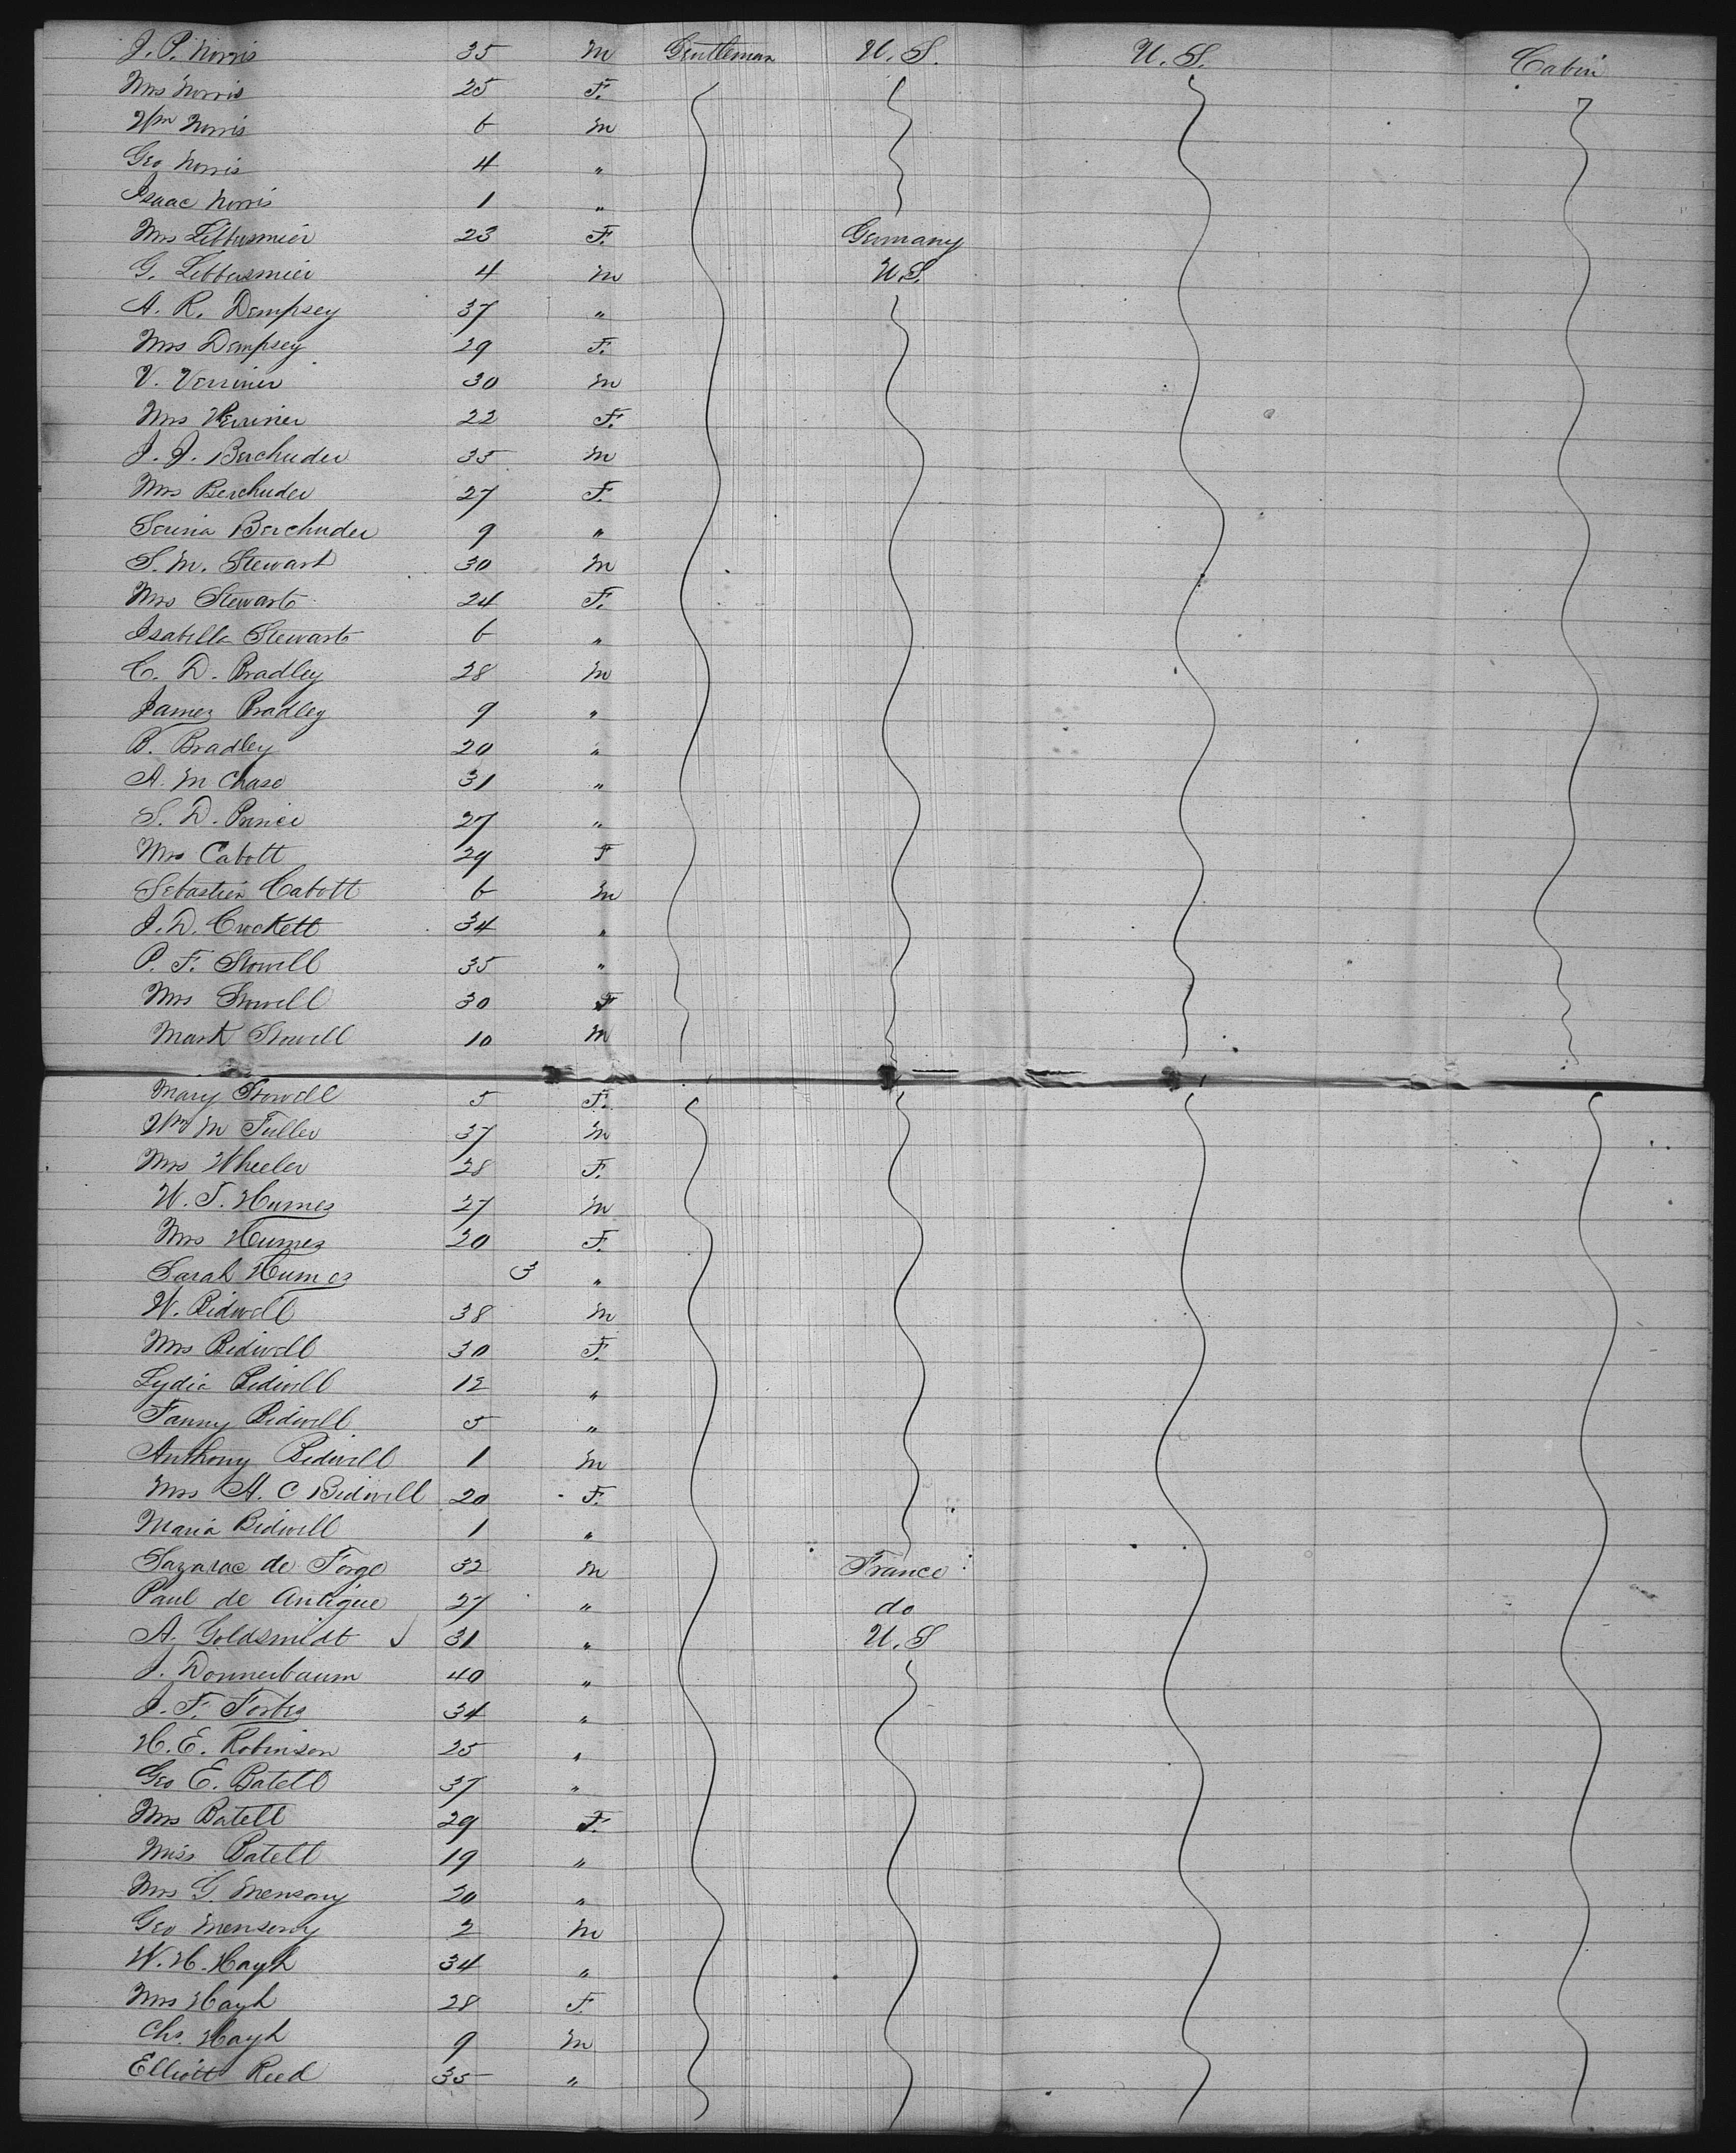 J. P. Norris 35 M Gentleman U. S. U. S. Cabin
Mrs Norris 25 F.
Wm Norris 6 M
Geo Norris 4 "
Isaac Norris 1 "
Mrs 23 F. Germany
G. 4 M U.S.
A. R. Dempsey 37 "
Mrs Dempsey 29 F.
V. Verriner 30 M
Mrs Verriner 22 F.
J. J. Berchuder 35 M
Mrs Berchuder 27 F.
Berchuder 9 "
S. M. Stewart 30 M
Mrs Stewart 24 F.
Isabella Stewart 6 "
C. D. Bradley 28 M
James Bradley 9 "
B. Bradley 20 "
A. M Chase 31 "
S. D. Prince 27 "
Mrs Cabott 29 F
Sebastien Cabott 6 M
J. D. Crockett 34 "
P. F. Stowell 35 "
Mrs Stowell 30 F
Mark Stowell 10 M
Mary Stowell 5 F.
Wm M Fuller 37 M
Mrs Wheeler 28 F.
W. T. Humes 27 M
Mrs Humes 20 F.
Sarah Humes 3 "
W. Bidwell 38 M
Mrs Bidwell 30 F.
Lydia Bidwell 12 "
Fanny Bidwell 5 "
Anthony Bidwell 1 M
Mrs A. C Bidwell 20 F.
Maria Bidwell 1 "
de Forge 32 M France
Paul de Antigue 27 " do
A. Goldsmidt 31 " U. S
J. Donnerbaum 40 "
J. F. Forbes 34 "
H. E. Robinson 25 "
Geo E. Batell 37 "
Mrs Batell 29 F.
Miss Batell 19 "
Mrs G. Mensony 20 "
Geo Mensony 2 M
W. H. Hayh 34 "
Mrs Hayh 28 F.
Chs. Hayh 9 M
Elliott Reed 35 "